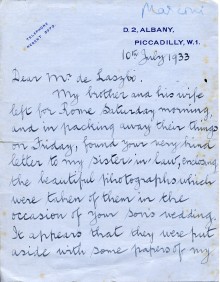 Marconi
TELEPHONE
REGENT
D. 2, ALBANY,
PICCADILLY, W.1.
10th July 1933
Dear Mrs de Laszlo.
My brother and his wife
left for Rome Saturday morning,
and in packing away their things
on Friday, found your very kind
letter to my sister in law, enclosing
the beautiful photographs which
were taken of them in the
occasion of your son's wedding.
It appears that they were put
aside with some papers of my